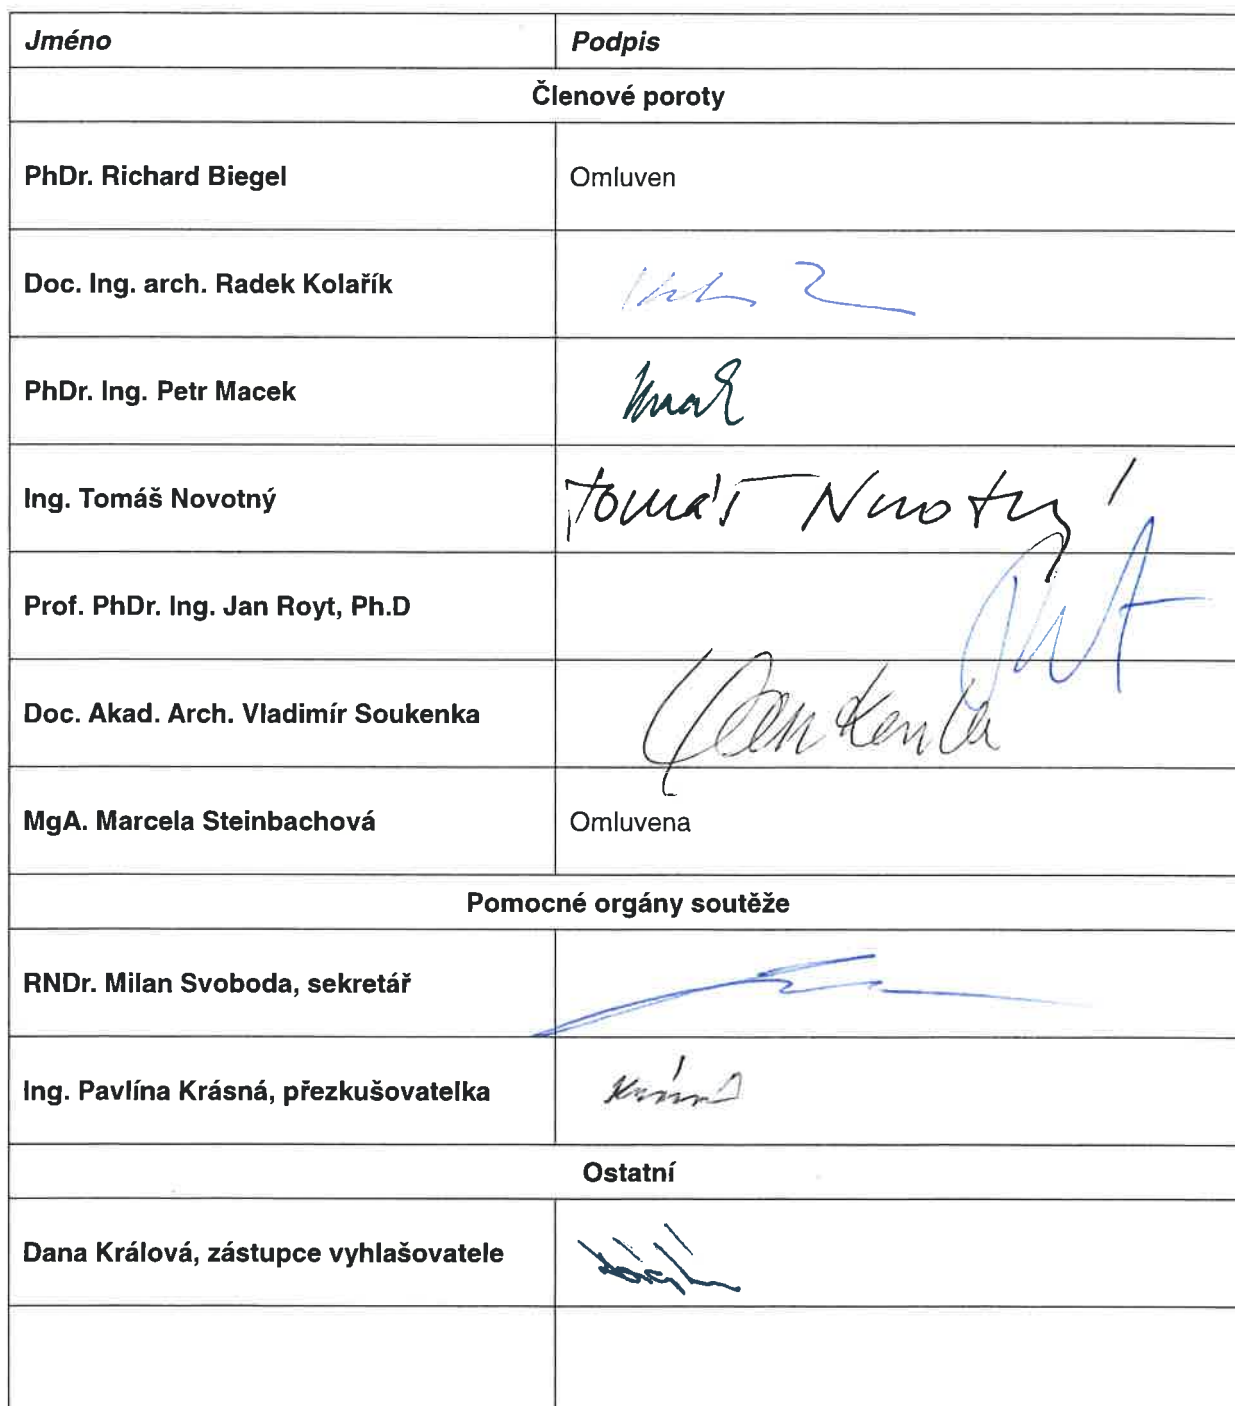 Jméno Podpis
Členové poroty
PhDr. Richard Biegel Omluven
Doc. Ing. arch. Radek Kolařík
PhDr. Ing. Petr Macek
Ing. Tomáš Novotný Tomáš Novotný
Prof. PhDr. Ing. Jan Royt, Ph.D
Doc. Akad. Arch. Vladimír Soukenka
MgA. Marcela Steinbachová Omluvena
Pomocné orgány soutěže
RNDr. Milan Svoboda, sekretář
Ing. Pavlína Krásná, přezkušovatelka
Ostatní
Dana Králová, zástupce vyhlašovatele